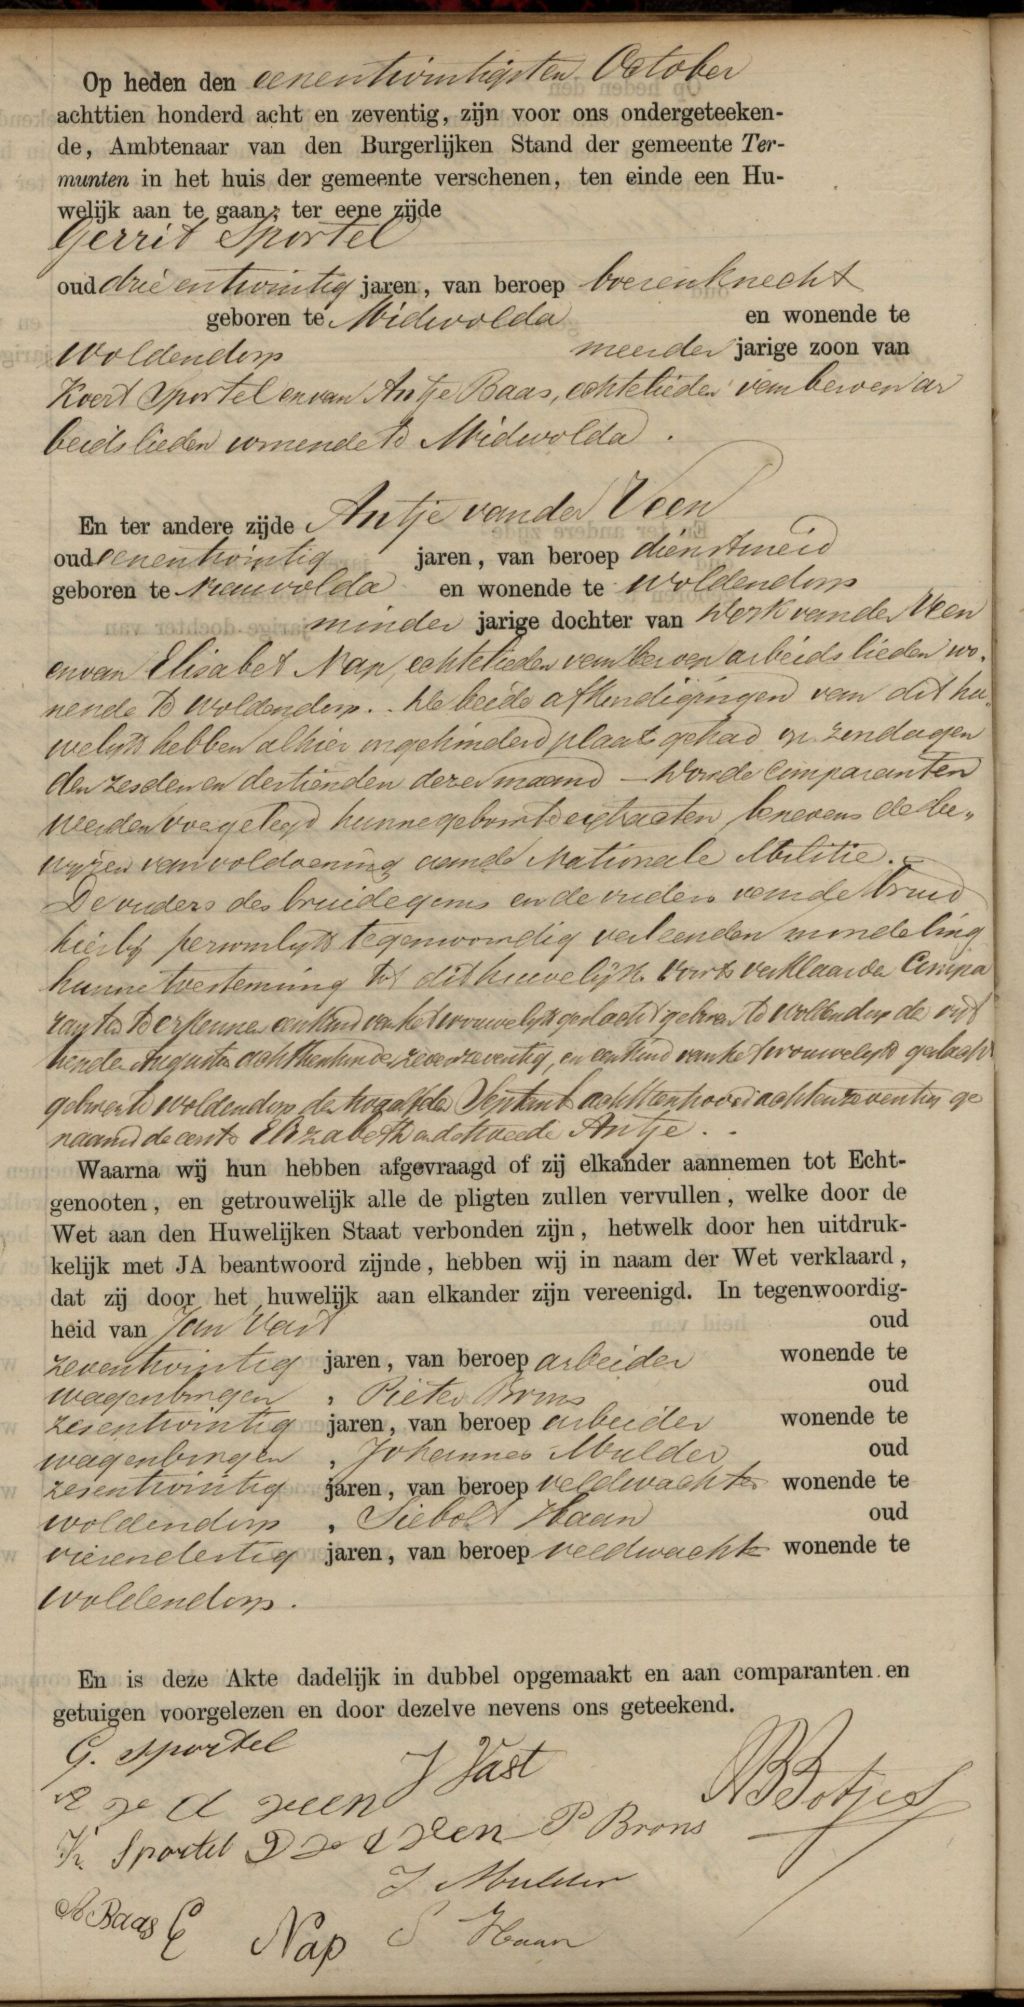 Op heden den eenentwintigsten October
achttien honderd acht en zeventig, zijn voor ons ondergeteeken-
de, Ambtenaar van den Burgerlijken Stand der gemeente Ter-
munten in het huis der gemeente verschenen, ten einde een Hu-
welijk aan te gaan; ter eene zijde
Gerrit Sportel
oud drie entwintig jaren, van beroep boerenknecht
geboren te Midwolda en wonende te
Woldendorp meerder jarige zoon van
Koert Sportel en van Antje Baas, echtelieden van beroep ar
beidslieden wonende te Midwolda.
En ter andere zijde Antje van der Veen
oud eenentwintig jaren, van beroep dienstmeid
geboren te Nieuwolda en wonende te Woldendorp
minder jarige dochter van Derk van der Veen
en van Elisabet Nap, echtelieden van beroep arbeidslieden wo,
nende te Woldendorp. De beide afkondigingen van dit hu,
welijk hebben alhier ongehinderd plaats gehad op zondagen
den zesden en dertienden dezer maand – Door de comparanten
werden overgelegd hunne geboorte extracten, benevens de be,,
wijzen van voldoening aan de Nationale Militie.
De ouders des bruidegoms en de ouders van de bruid
hierbij persoonlijk tegenwoordig verleenden mondeling
hunne toestemming tot dit huwelijk. Voorts verklaarde Compa
ranten te erkennen een kind van het vrouwelijk geslacht geboren te Woldendorp de
Augustus achttienhonderd zevenzeventig, en een kind van het vrouwelijk geslacht
geboren te Woldendorp den twaalfden Septemb achttienhonderd achtenzeventig ge
naamd de eerste Elizabeth en de tweede Antje.
Waarna wij hun hebben afgevraagd of zij elkander aannemen tot Echt-
genooten, en getrouwelijk alle de pligten zullen vervullen, welke door de
Wet aan den Huwelijken Staat verbonden zijn, hetwelk door hen uitdruk-
kelijk met JA beantwoord zijnde, hebben wij in naam der Wet verklaard,
dat zij door het huwelijk aan elkander zijn vereenigd. In tegenwoordig-
heid van Jan Vast oud
zeventwintig jaren, van beroep arbeider wonende te
wagenborgen, Pieter Brons oud
zesentwintig jaren, van beroep arbeider wonende te
wagenborgen, Johannes Mulder oud
zesentwintig jaren, van beroep veldwachter wonende te
woldendorp, Siebolt Haan oud
vierendertig jaren, van beroep veldwachter wonende te
woldendorp.
En is deze Akte dadelijk in dubbel opgemaakt en aan comparanten en
getuigen voorgelezen en door dezelve nevens ons geteekend.
G. Sportel J Vast
A v d veen Botjes
K Sportel D v d veen P Brons
J Mulder
A Baas E Nap S Haan